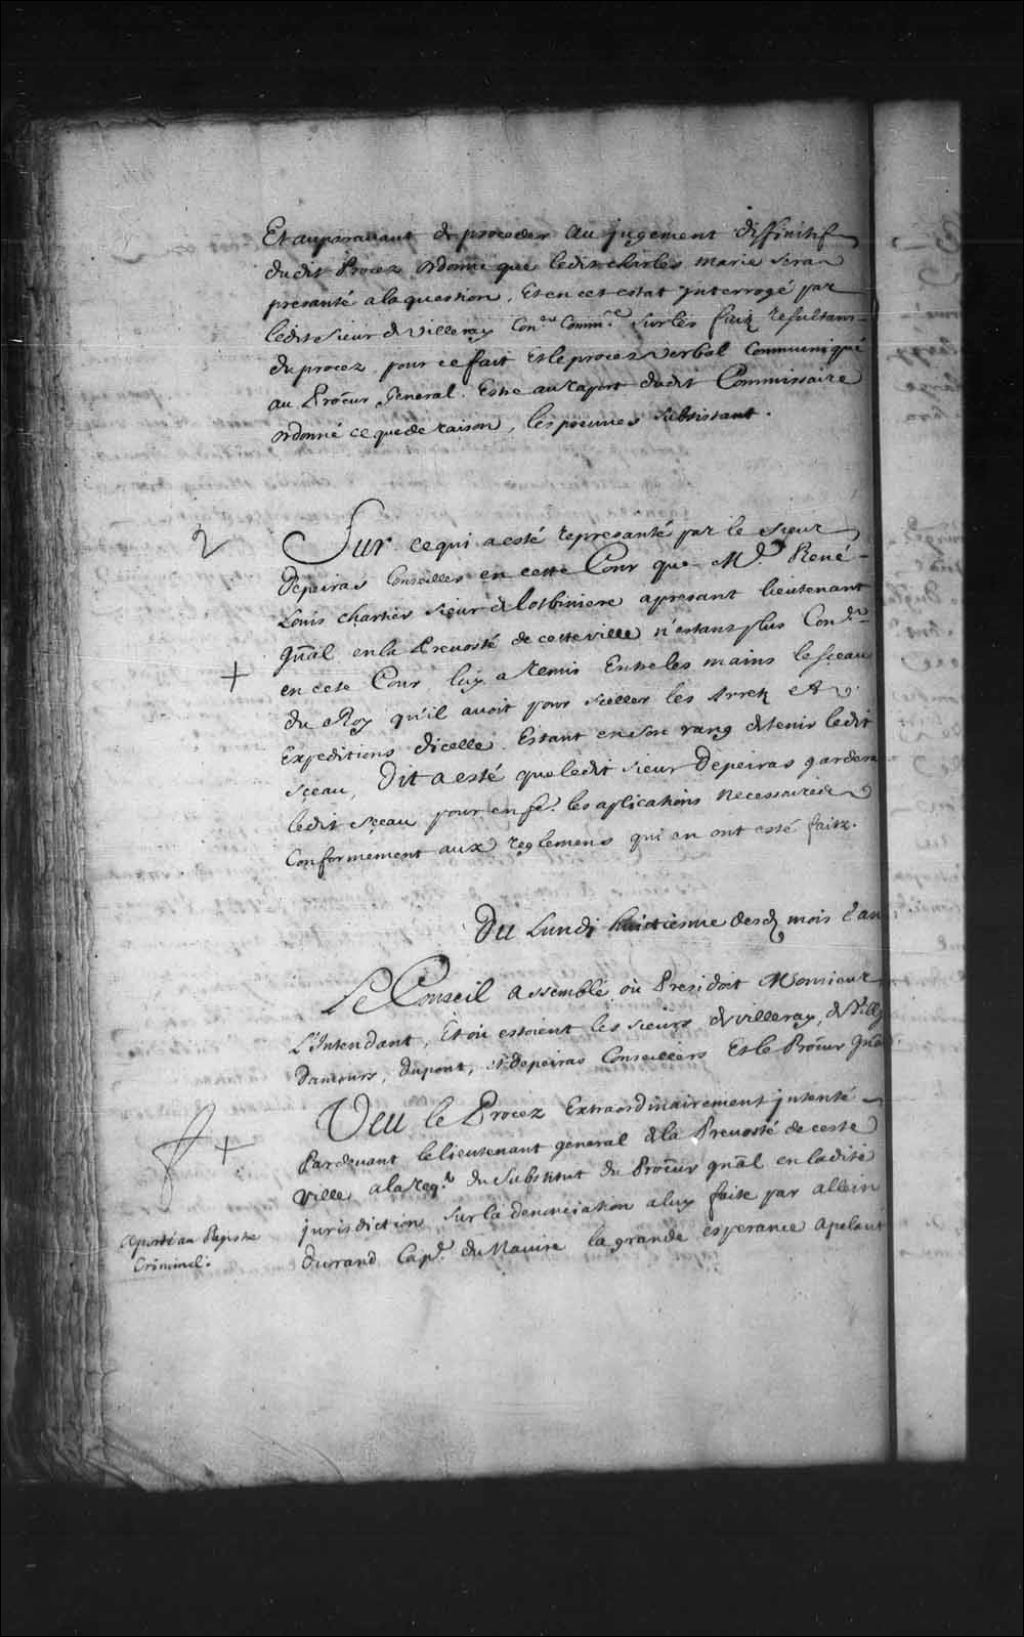 Et auparavant de proceder au jugement diffinitif
dudit Procez ordonne que ledit charles marie sera
presanté a la question, Et en cet estat jnterrogé par
ledit sieur de villeray Con.er Comm.re sur les faitz resultans
du procez, pour ce fait Et le procez verbal Communiqué
au Procur general. Estre au raport dudit Commissaire
ordonné ce que de raison, les preuves subsistant.
2
Sur ce qui a esté representé par le sieur
Depeiras Conseiller en cette Cour que M.e René
Louis chartier sieur de lotbiniere apresant lieutenant
gnãl en la Prevosté de cette ville n'estant plus Con.er
+
en cete Cour luy a remis Entre les mains le sceau
du Roy qu'il avoit pour sceller les Arretz et
Expeditions dicelle. Estant en son rang de tenir ledit
sceau, Dit a esté que ledit sieur Depeiras gardera
ledit sceau pour en fe. les aplications necessaires
Conformement aux reglemens qui en ont esté faitz.
Du Lundi huictiesme desd mois & an
Le Conseil assemblé où Presidoit Monsieur
L'Intendant, Et où estoient les sieurs de villeray, de Tilly
Damours, dupont, et depeiras Conseillers Et le Procur gnãl
Veu le Procez Extraordinairement jntenté
+
Pardevant le lieutenant general de la Prevosté de ceste
ville, a la req.te du Substitut du Procur gnãl en ladite
jurisdiction sur la denonciation a luy faite par allain
aporté au Registre
Criminel.
durrand Cap.e du Navire la grande esperance apelant